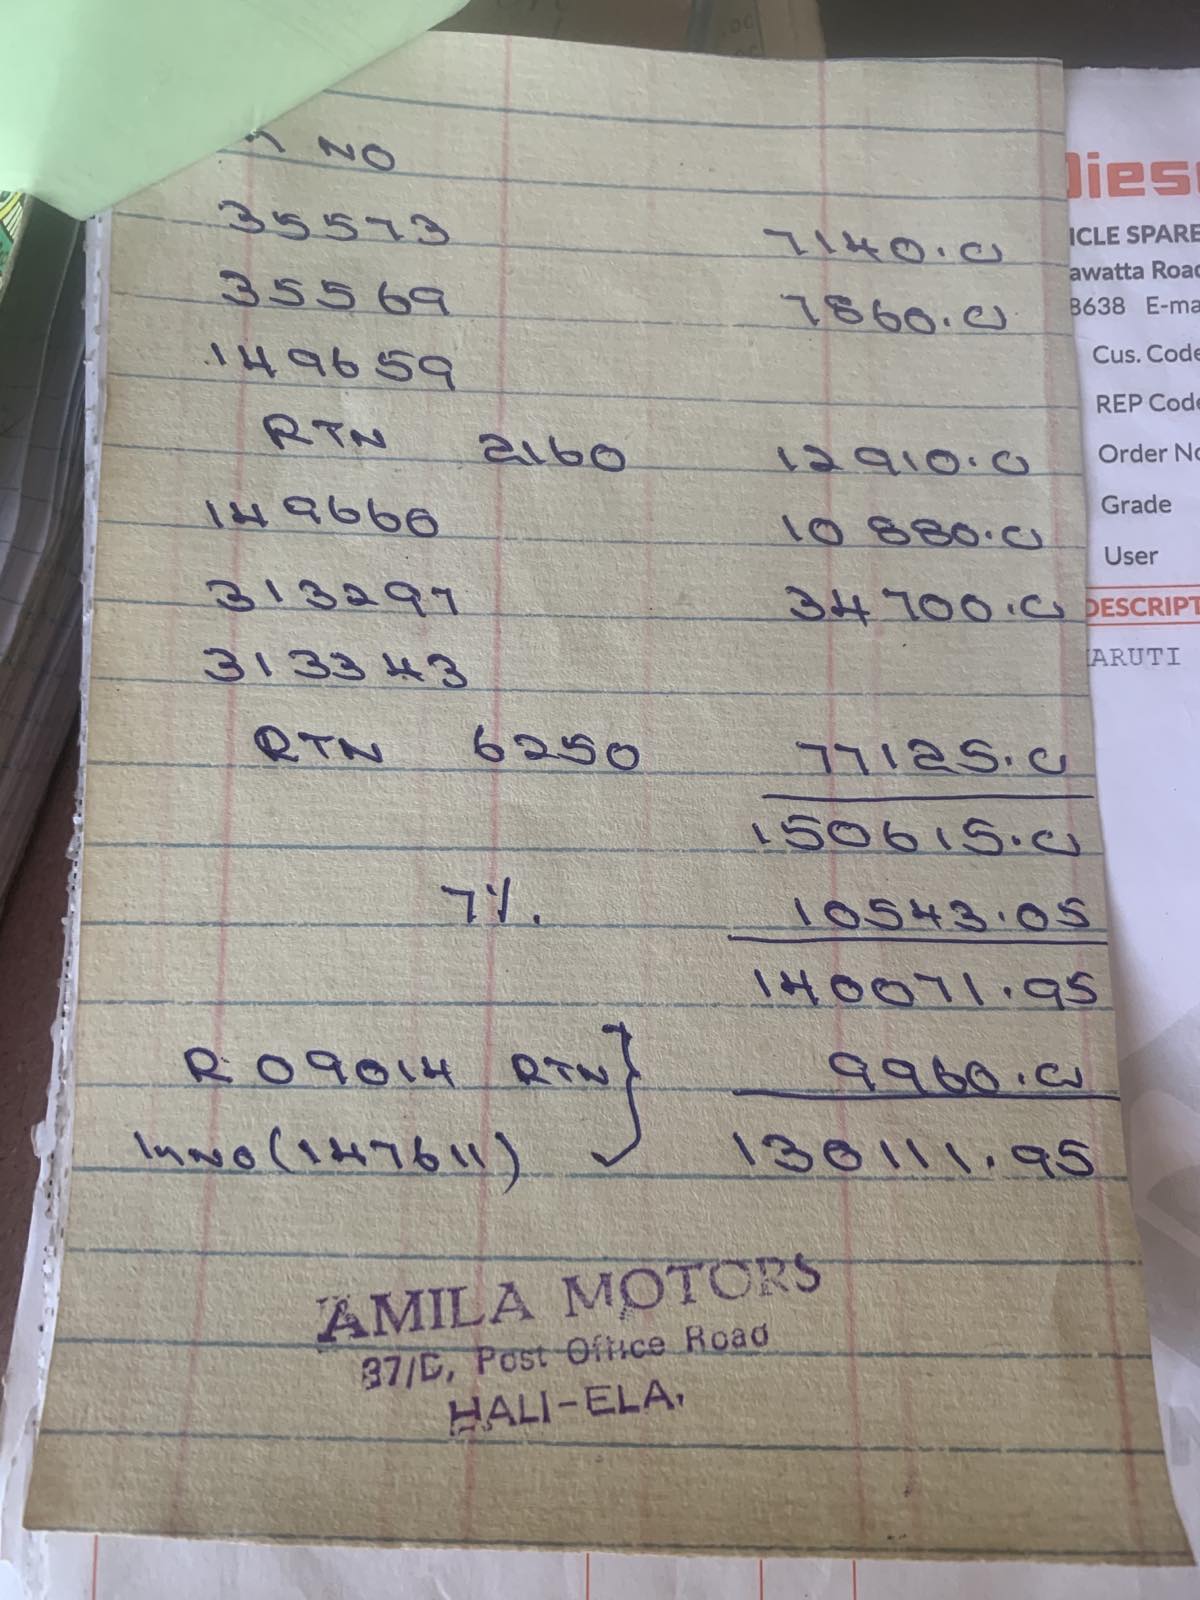 NO
35573 7140.00
35569 7860.00
149659
RTN 2160 12910.00
149660 10880.00
313297 34700.00
313343
RTN 6250 77125.00
150615.00
7%. 10543.05
140071.95
R 09014 RTN 9960.00
InNO (147611) 130111.95
AMILA MOTORS
37/C, Post Office Road
HALI-ELA.
Dies
ICLE SPARE
awatta Road
8638 E-ma
Cus. Code
REP Code
Order No
Grade
User
DESCRIPT
ARUTI